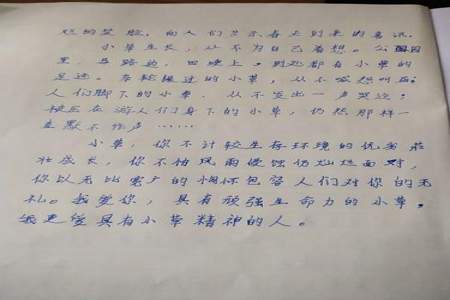 烂的笑脸，向人们昭示着春天到来的喜讯。
小草生长，从不为自己着想。公园
里、马路边、田埂上，到处都有小草的
足迹。车轮辗过的小草，从不发怒叫屈；
人们脚下的小草，从不发出一声哭泣；
被压在游人们身下的小草，仍然那样一
直默不作声……
小草，你不计较生存环境的优劣茁
壮成长，你不怕风雨侵蚀仍灿烂面对，
你以无比宽广的胸怀包容人们对你的无
礼。我爱你，具有顽强生命力的小草，
我更爱具有小草精神的人。